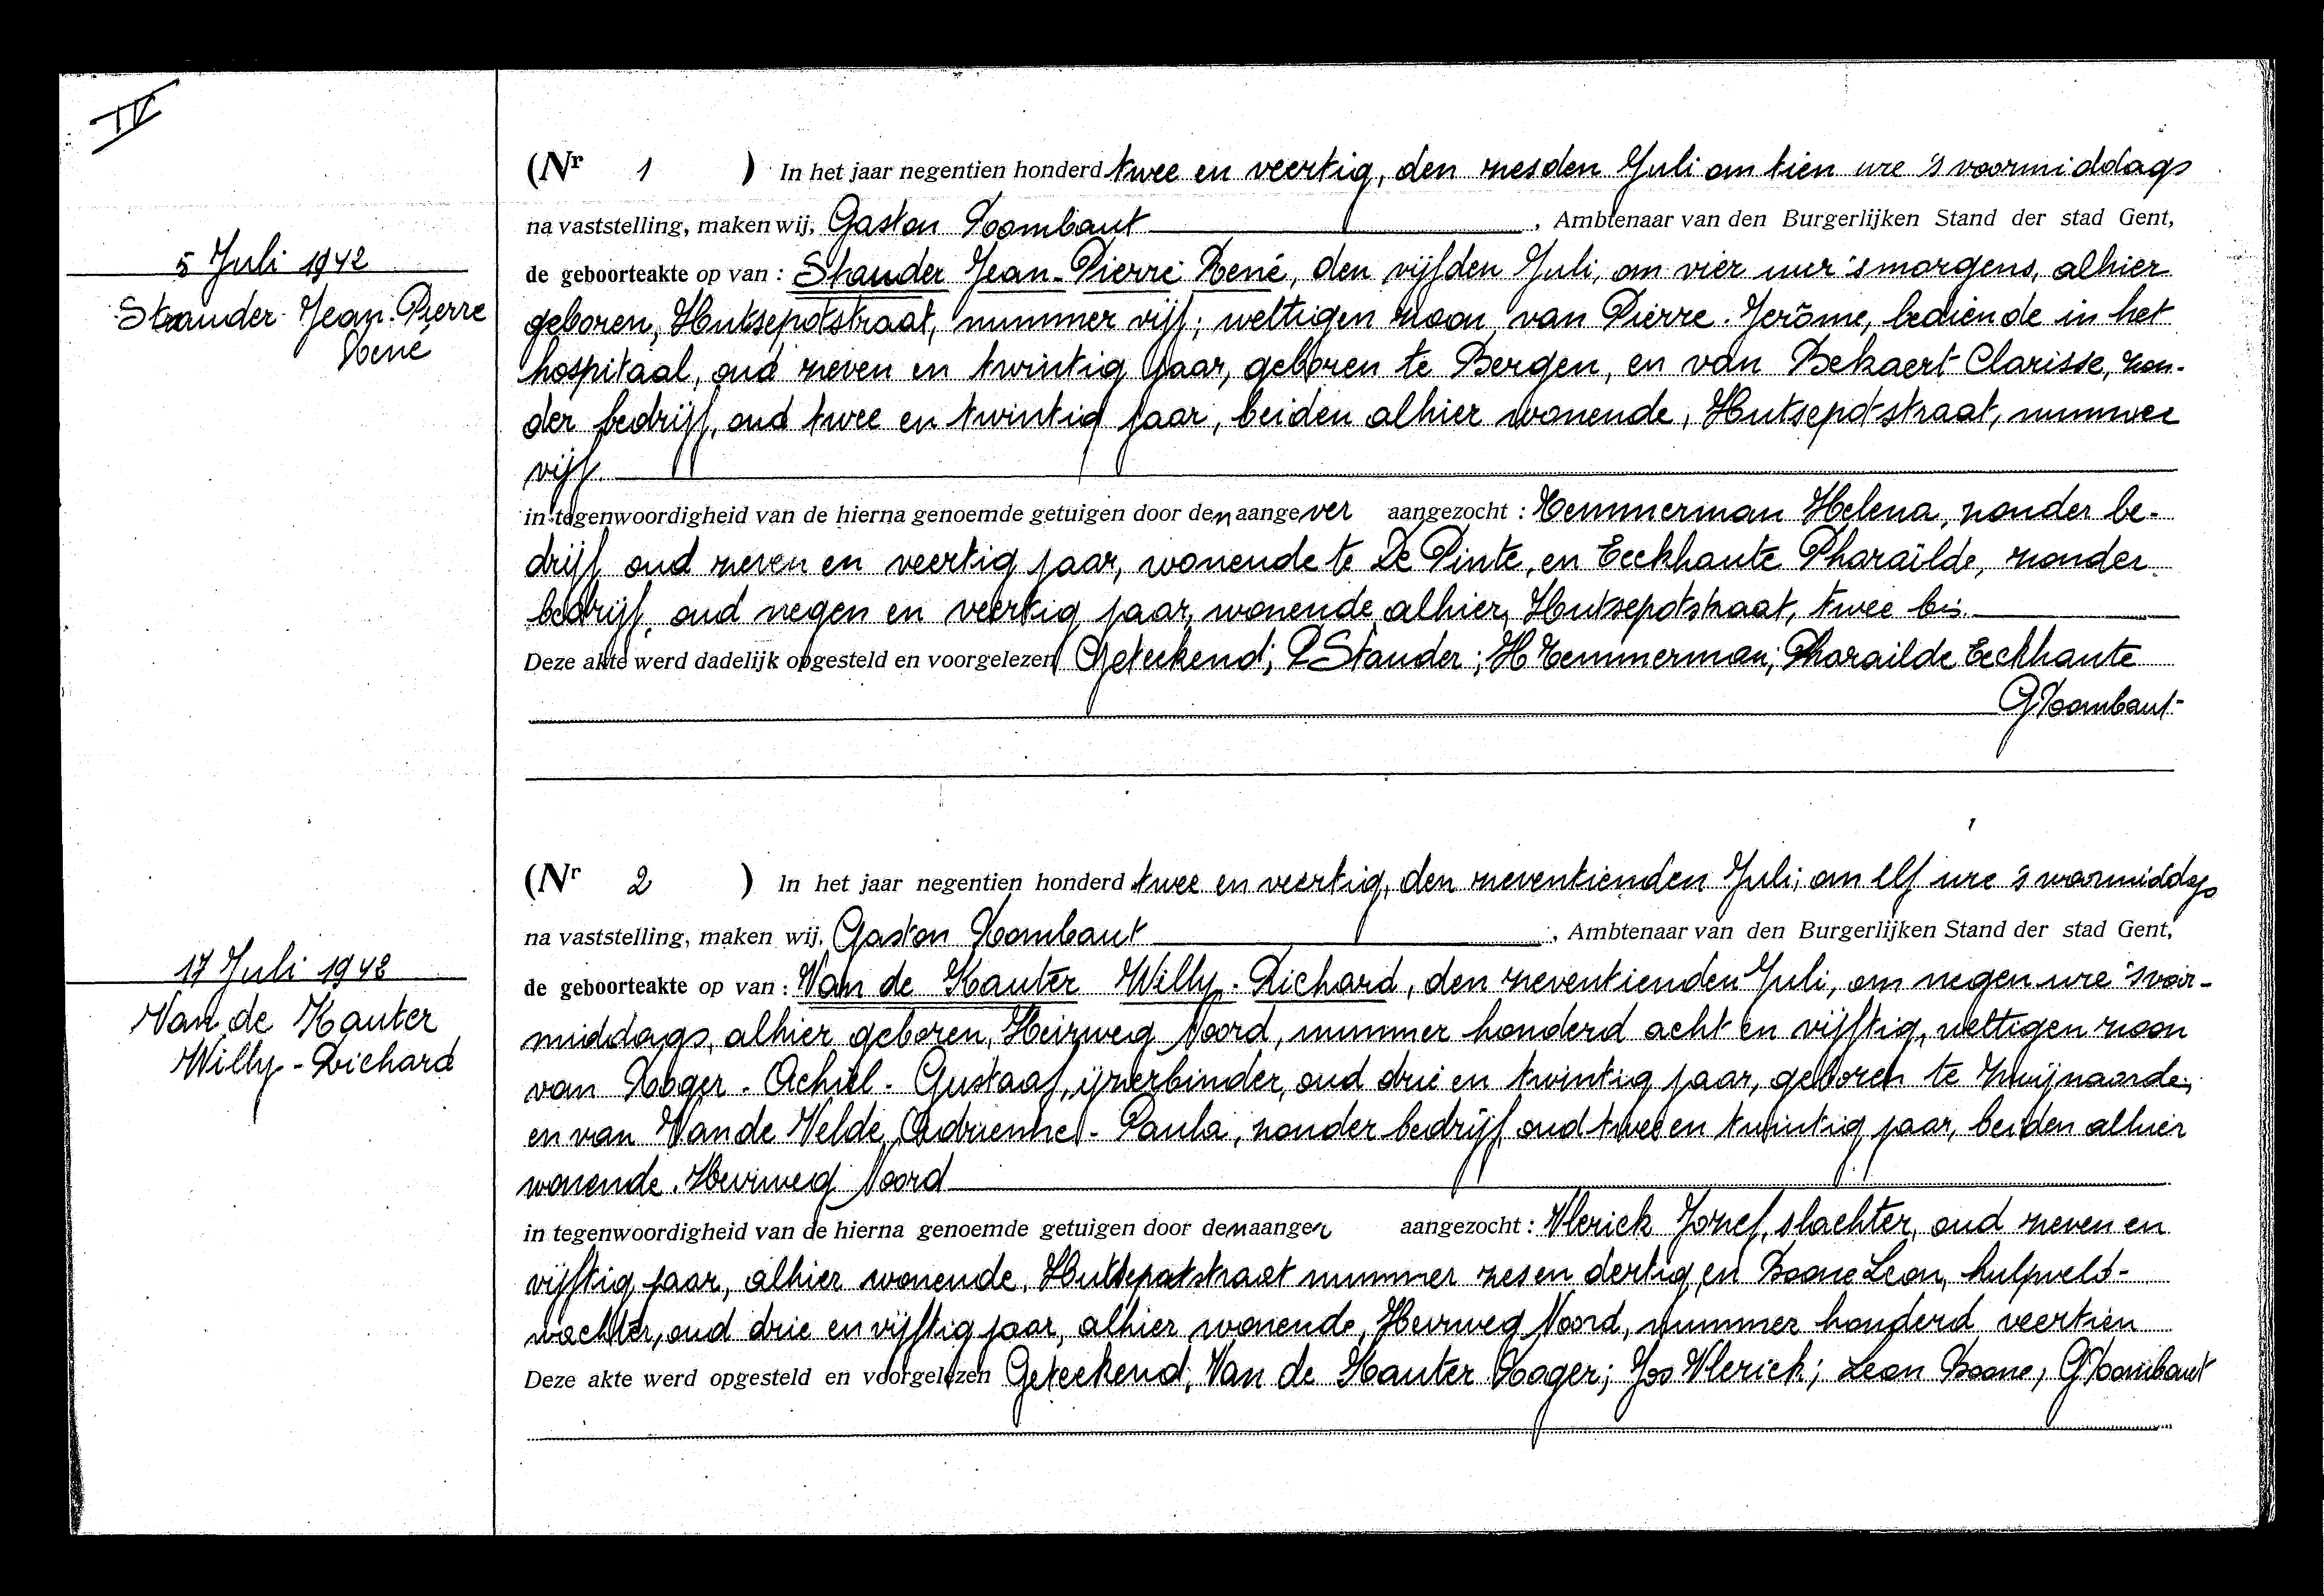 IV
(Nr 1 ) In het jaar negentien honderd twee en veertig, den zesden Juli om tien ure 's voormiddags
na vaststelling, maken wij, Gaston Toombaut , Ambtenaar van den Burgerlijken Stand der stad Gent,
5 Juli 1942
Strander Jean-Pierre
René
de geboorteakte op van : Stander Jean-Pierre René, den vijfden Juli, om vier uur 's morgens, alhier
geboren, Hutsepotstraat, nummer vijf; wettigen zoon van Pierre-Jerôme, bediende in het
hospitaal, oud zeven en twintig jaar, geboren te Bergen, en van Bekaert Clarisse, zon-
der bedrijf, oud twee en twintig jaar, beiden alhier wonende, Hutsepotstraat, nummer
vijf.
in tegenwoordigheid van de hierna genoemde getuigen door den aangever aangezocht : Temmerman Helena, zonder be-
drijf oud zeven en veertig jaar, wonende te De Pinte, en Eeckhaute Pharaïlde, zonder
bedrijf, oud negen en veertig jaar, wonende alhier, Hutsepotstraat, twee bis.
Deze akte werd dadelijk opgesteld en voorgelezen Geteekend; P Stander; H Temmerman; Pharailde Eeckhaute
G Toombaut
(Nr 2 ) In het jaar negentien honderd twee en veertig, den zeventienden Juli; om elf ure 's voormiddags
na vaststelling, maken wij, Gaston Toombaut , Ambtenaar van den Burgerlijken Stand der stad Gent,
17 Juli 1942
Van de Kauter
Willy-Richard
de geboorteakte op van : Van de Kauter Willy-Richard, den zeventienden Juli, om negen ure 's voor-
middags, alhier geboren, Heirweg Noord, nummer honderd acht en vijftig, wettigen zoon
van Roger-Achiel-Gustaaf, ijzerbinder, oud drie en twintig jaar, geboren te Zwijnaarde,
en van Van de Velde, Adrienne-Paula, zonder bedrijf oud twee en twintig jaar, beiden alhier
wonende. Heirweg Noord
in tegenwoordigheid van de hierna genoemde getuigen door den aanger aangezocht : Vlerick Jozef, slachter, oud zeven en
vijftig jaar, alhier wonende, Hutsepotstraat nummer zes en dertig, en Boone Leon, hulpveld-
wachter, oud drie en vijftig jaar, alhier wonende, Heirweg Noord, nummer honderd veertien
Deze akte werd opgesteld en voorgelezen Geteekend; Van de Kauter Roger; Jos Vlerick; Leon Boone; G Toombaut